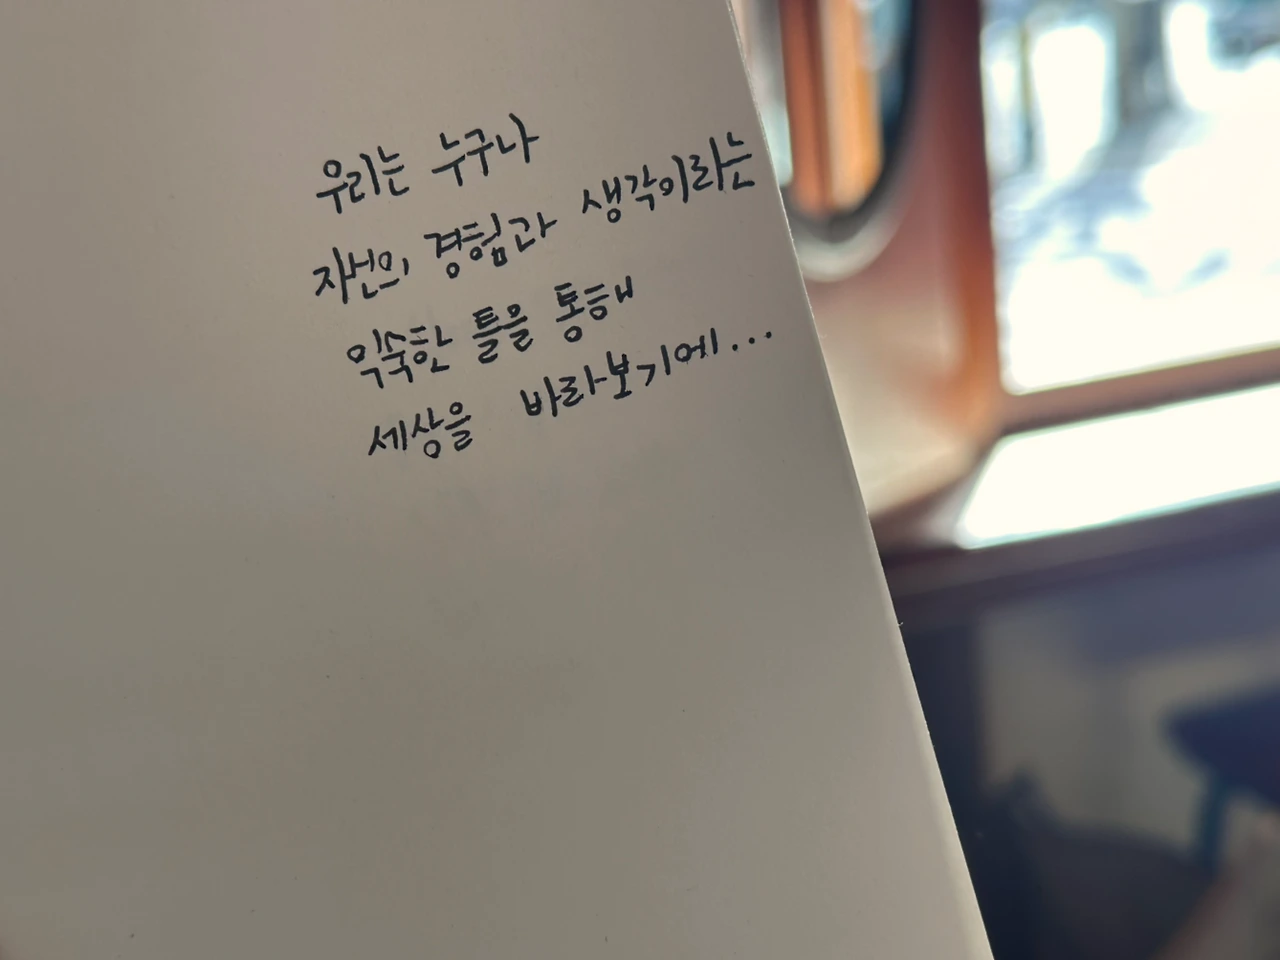 우리는 누구나
자신의 경험과 생각이라는
익숙한 틀을 통해
세상을 바라보기에...